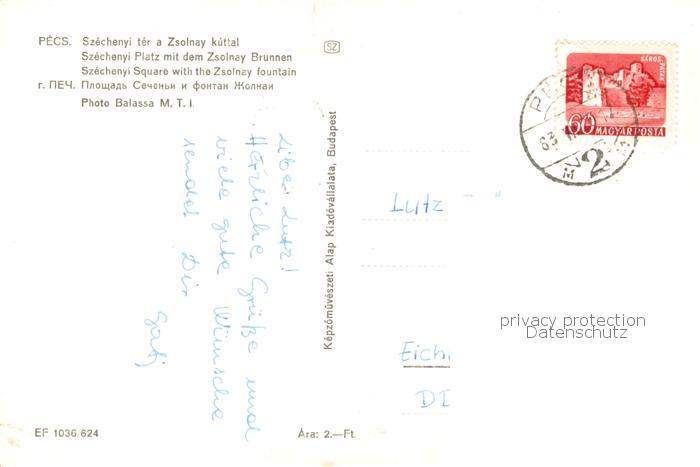 PÉCS. Széchenyi tér a Zsolnay kúttal
Széchenyi Platz mit dem Zsolnay Brunnen
Széchenyi Square with the Zsolnay fountain
г. ПЕЧ. Площадь Сеченьи и фонтан Жолнаи
Photo Balassa M. T. I.
SZ
SÁROS-PATAK
60 MAGYAR POSTA
PÉCS
63
2
Liber Lutz!
Härzliche Grüße und
viele gute Wünsche
sendet Dir
Képzőművészeti Alap Kiadóvállalata, Budapest
Lutz
privacy protection
Datenschutz
Eich
DD
EF 1036/624
Ára: 2.—Ft.